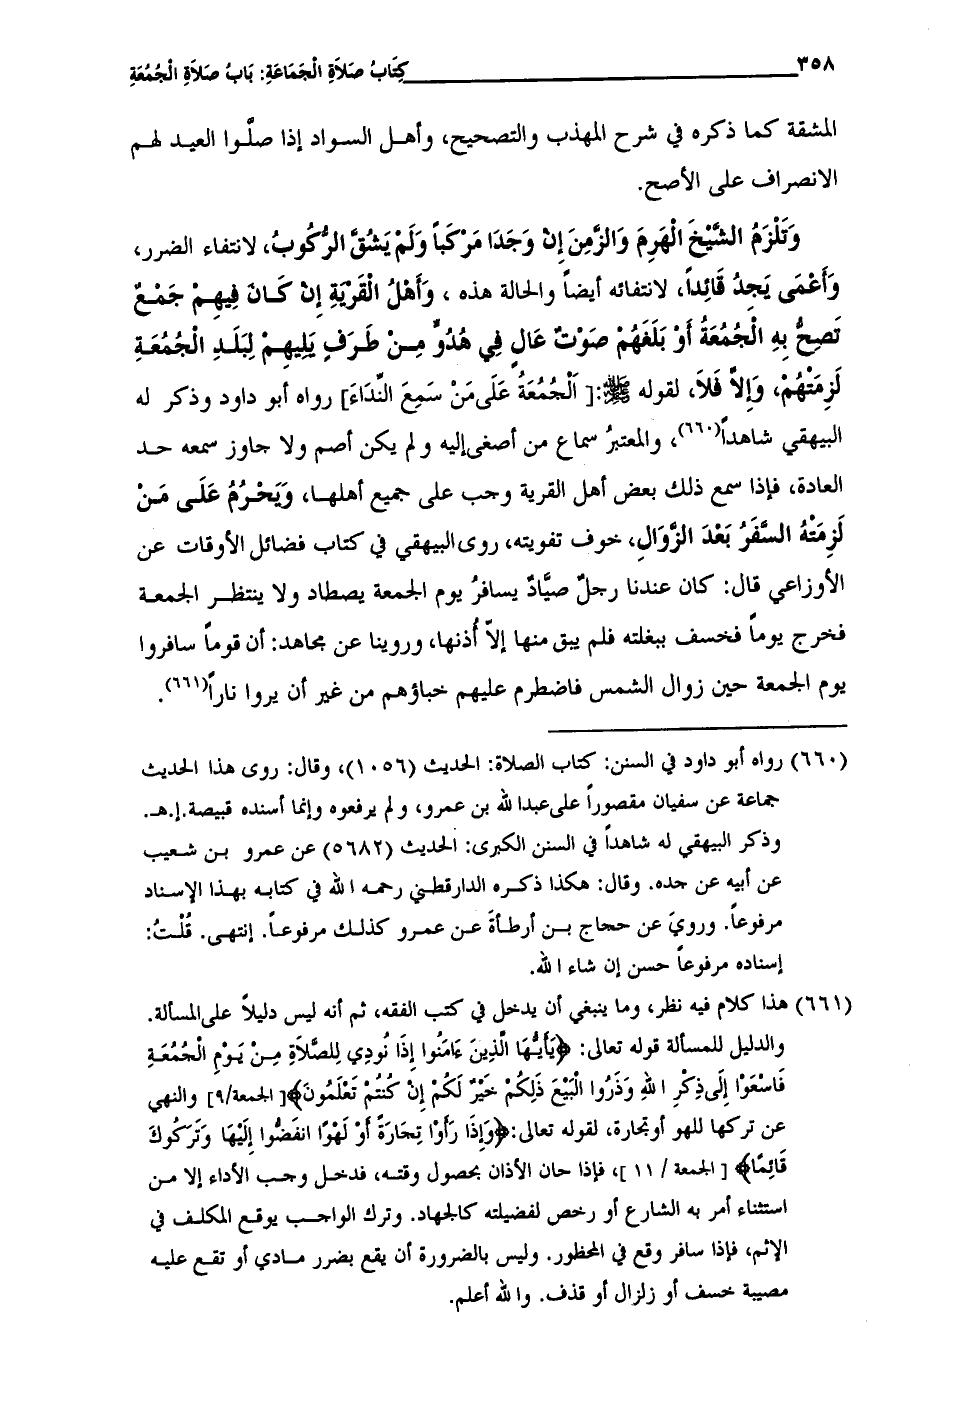 ٣٥٨ كِتَابُ صَلاَةِ الْجَمَاعَةِ: بَابُ صَلاَةِ الْجُمُعَةِ
المشقة كما ذكره في شرح المهذب والتصحيح، وأهل السواد إذا صلَّوا العيد لهم
الانصراف على الأصح.
وَتَلْزَمُ الشَّيْخَ الْهَرِمَ وَالزَّمِنَ إِنْ وَجَدَا مَرْكَباً وَلَمْ يَشُقَّ الرُّكُوبُ، لانتفاء الضرر،
وَأَعْمَى يَجِدُ قَائِداً، لانتفائه أيضاً والحالة هذه ، وَأَهْلُ الْقَرْيَةِ إِنْ كَانَ فِيهِمْ جَمْعٌ
تَصِحُّ بِهِ الْجُمُعَةُ أَوْ بَلَغَهُمْ صَوْتٌ عَالٍ فِي هُدُوٍّ مِنْ طَرَفٍ يَلِيهِمْ لِبَلَدِ الْجُمُعَةِ
لَزِمَتْهُمْ، وَإِلاَّ فَلاَ، لقوله ﷺ:[ اَلْجُمُعَةُ عَلَى مَنْ سَمِعَ النِّدَاءَ] رواه أبو داود وذكر له
البيهقي شاهداً(٦٦٠)، والمعتبرُ سماع من أصغى إليه و لم يكن أصم ولا جاوز سمعه حد
العادة، فإذا سمع ذلك بعض أهل القرية وجب على جميع أهلها، وَيَحْرُمُ عَلَى مَنْ
لَزِمَتْهُ السَّفَرُ بَعْدَ الزَّوَالِ، خوف تفويته، روى البيهقي في كتاب فضائل الأوقات عن
الأوزاعي قال: كان عندنا رجلٌ صيَّادٌ يسافرُ يوم الجمعة يصطاد ولا ينتظر الجمعة
فخرج يوماً فخسف ببغلته فلم يبق منها إلاّ أُذنها، وروينا عن مجاهد: أن قوماً سافروا
يوم الجمعة حين زوال الشمس فاضطرم عليهم خباؤهم من غير أن يروا ناراً(٦٦١).
(٦٦٠) رواه أبو داود في السنن: كتاب الصلاة: الحديث (١٠٥٦)، وقال: روى هذا الحديث
جماعة عن سفيان مقصوراً على عبدا لله بن عمرو، و لم يرفعوه وإنما أسنده قبيصة.إ.هـ.
وذكر البيهقي له شاهداً في السنن الكبرى: الحديث (٥٦٨٢) عن عمرو بن شعيب
عن أبيه عن جده. وقال: هكذا ذكره الدارقطني رحمه ا لله في كتابه بهذا الإسناد
مرفوعاً. ورويَ عن حجاج بن أرطأةَ عن عمرو كذلك مرفوعاً. إنتهى. قُلْتُ:
إسناده مرفوعاً حسن إن شاء ا لله.
(٦٦١) هذا كلام فيه نظر، وما ينبغي أن يدخل في كتب الفقه، ثم أنه ليس دليلاً على المسألة.
والدليل للمسألة قوله تعالى: ﴿يَأَيُّهَا الَّذِينَ ءَامَنُوا إِذَا نُودِي لِلصَّلاَةِ مِنْ يَوْمِ الْجُمُعَةِ
فَاسْعَوْا إِلَى ذِكْرِ ا للهِ وَذَرُوا الْبَيْعَ ذَلِكُمْ خَيْرٌ لَكُمْ إِنْ كُنتُمْ تَعْلَمُونَ﴾[ الجمعة/٩] والنهي
عن تركها للهو أوتجارة، لقوله تعالى:﴿وَإِذَا رَأَوْا تِجَارَةً أَوْ لَهْوًا انفَضُّوا إِلَيْهَا وَتَرَكُوكَ
قَائِمًا﴾ [ الجمعة / ١١ ]، فإذا حان الأذان بحصول وقته، فدخل وجب الأداء إلا من
استثناء أمر به الشارع أو رخص لفضيلته كالجهاد. وترك الواجب يوقع المكلف في
الإثم، فإذا سافر وقع في المحظور. وليس بالضرورة أن يقع بضرر مادي أو تقع عليه
مصيبة خسف أو زلزال أو قذف. وا لله أعلم.